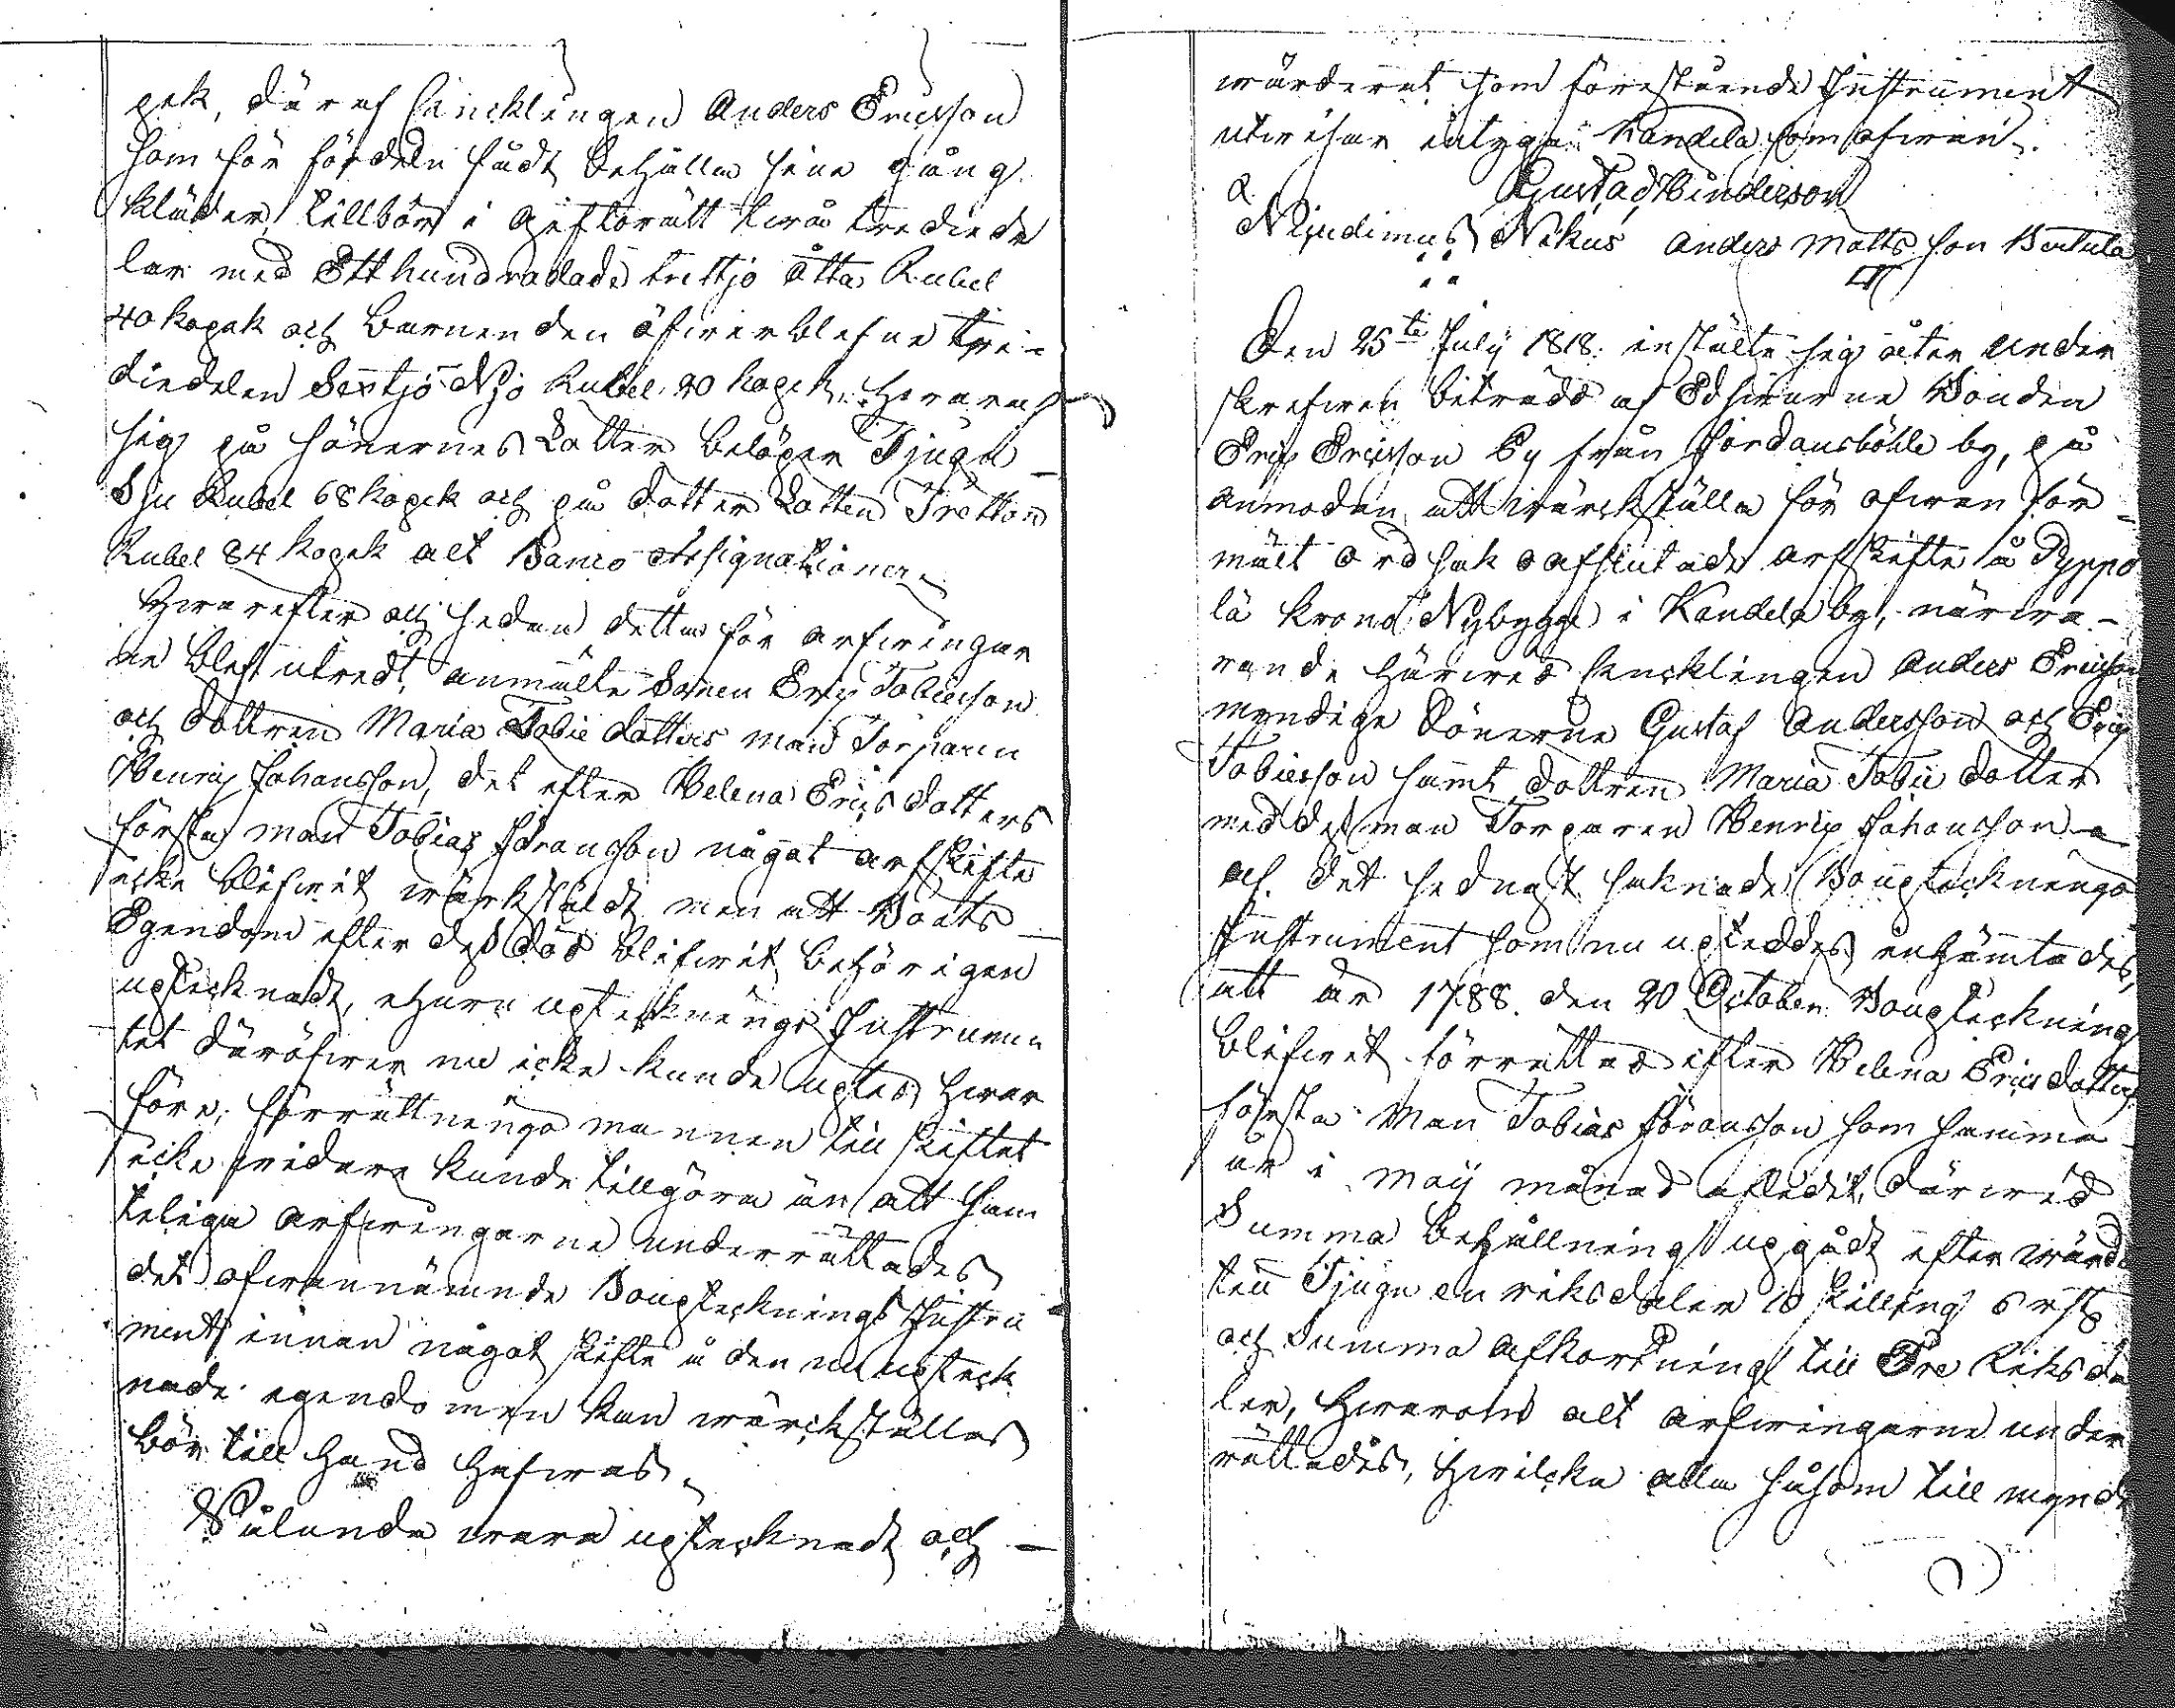 pek, där af Enecklingen Anders Ericsson
som för fördeln fådt behålla sine gång
kläder, tillkör i giftorätt twå trediede
lar med Etthundradade trettjo åtta Rubel
40 kopek och Barnen den öfwerblefne tre-
diedelen Sextjo Njo Rubel 20 kopek, hwaraf
sig på sönernes Lotter belöper Tjugu
Sju Rubel 68 kopek och på dotter Lotten Tretton
Rubel 84 kopek alt Banco Assignationer.
Hwarefter och sedan detta för arfwingar
ne blef utredt, anmälte Sonen Eric Tobiesson
och dottren Maria Tobie dotters man Torparen
Henric Johansson, det efter Helena Erics dotters
första man Tobias Göransson något arfskifte
icke blifwit wärkstäldt men att Boets
Egendom efter des död blifwit behörigen
uptecknadt, ehuru uptekningsInstrumen
tet däröfwer nu icke kunde uptes, hwar
före, förrättnings mannen till skiftet
icke widare kunde tillgöra än att sam
telige arfwingarne underrättades
det ofwannämnde Boupteckning Instru
ment innan något skifte å den nu upteck
nade egendomen kan wärckställas
bör till hand hafwas.
Sålunda wara uptecknadt och
wärderat som förestående Instrument
utwisar intygar Kandela som ofwan.
Gustad Winderson
Nijudimus Nikus Anders Matts son Bertula
Den 25te July 1818. instälte sig åter under
skrefwen biträdd af Edswurne Bonden
Eric Ericsson By från Jordansböhle by, på
anmodan att wärckställa för ofwan för
mält ordsak oafslutade arfskifte å Pyppö
lä krono Nybygge i Kandela by, närwa-
rande härwid Encklingen Anders Ericsson
myndige Sönerne Gustaf Andersson och Eric
Tobiesson samt dottren Maria Tobie dotter
med des man Torparen Henric Johansson
af det sednast saknade Boupteckningds
Instrument som nu upteddes inhämtades,
att år 1788. den 20 October Boupteckning
blifwit förrättad efter Helena Erics dotters
första Man Tobias Göransson som samma
år i Maij månad aflidit, därwid
Summa behållning upgådt efter wärde
till Tjugu en riksdaler 18 skilling 6 rst
och Summa afkortning till Tre Riksda
ler, hwarom alt arfwingarne under
rättades, hwilcka alla såsom till mynd